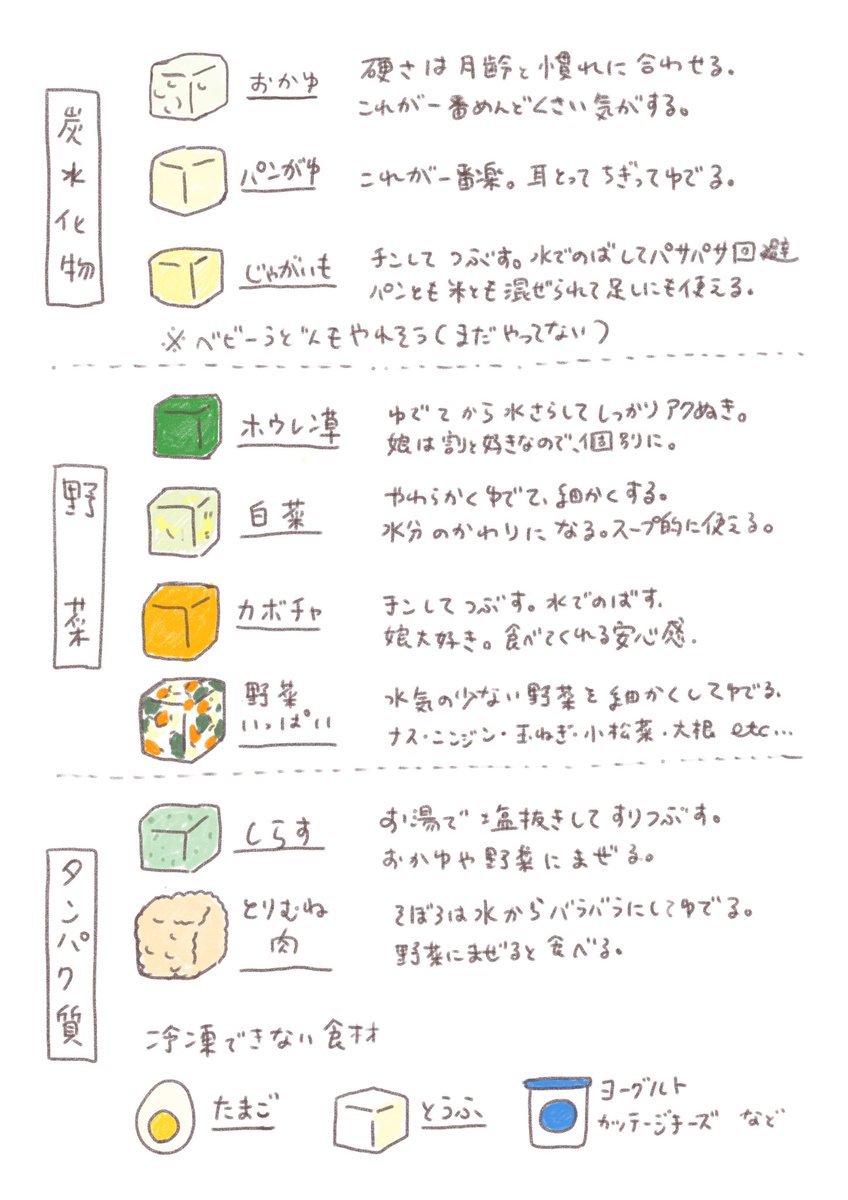 炭水化物
おかゆ
硬さは月齢と慣れに合わせる。
これが一番めんどくさい気がする。
パンがゆ
これが一番楽。耳とってちぎってゆでる。
じゃがいも
チンしてつぶす。水でのばしてパサパサ回避
パンとも米とも混ぜられて足しにも使える。
※ベビーうどんもやれそう(まだやってない)
野菜
ホウレン草
ゆでてから水さらしてしっかりアクぬき。
娘は割と好きなので、個別に。
白菜
やわらかくゆでて、細かくする。
水分のかわりになる。スープ的に使える。
カボチャ
チンしてつぶす。水でのばす。
娘大好き。食べてくれる安心感。
野菜
いっぱい
水気の少ない野菜を細かくしてゆでる。
ナス・ニンジン・玉ねぎ・小松菜・大根 etc...
タンパク質
しらす
お湯で塩抜きしてすりつぶす。
おかゆや野菜にまぜる。
とりむね
肉
そぼろは水からバラバラにしてゆでる。
野菜にまぜると食べる。
冷凍できない食材
たまご
とうふ
ヨーグルト
カッテージチーズ など